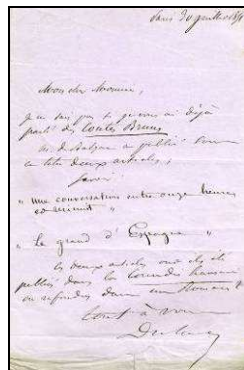 Paris 30 juillet 18
Mon cher Monsieur,
Je ne sais pas si je vous ai déjà
parlé des Contes Bruns
M. de Balzac a publié
en tête deux articles,
savoir:
" une conversation entre onze heures
et minuit "
" Le grand d'Espagne "
les deux articles ont été
dans la Comédie humaine
ou refondus dans
tout à vous